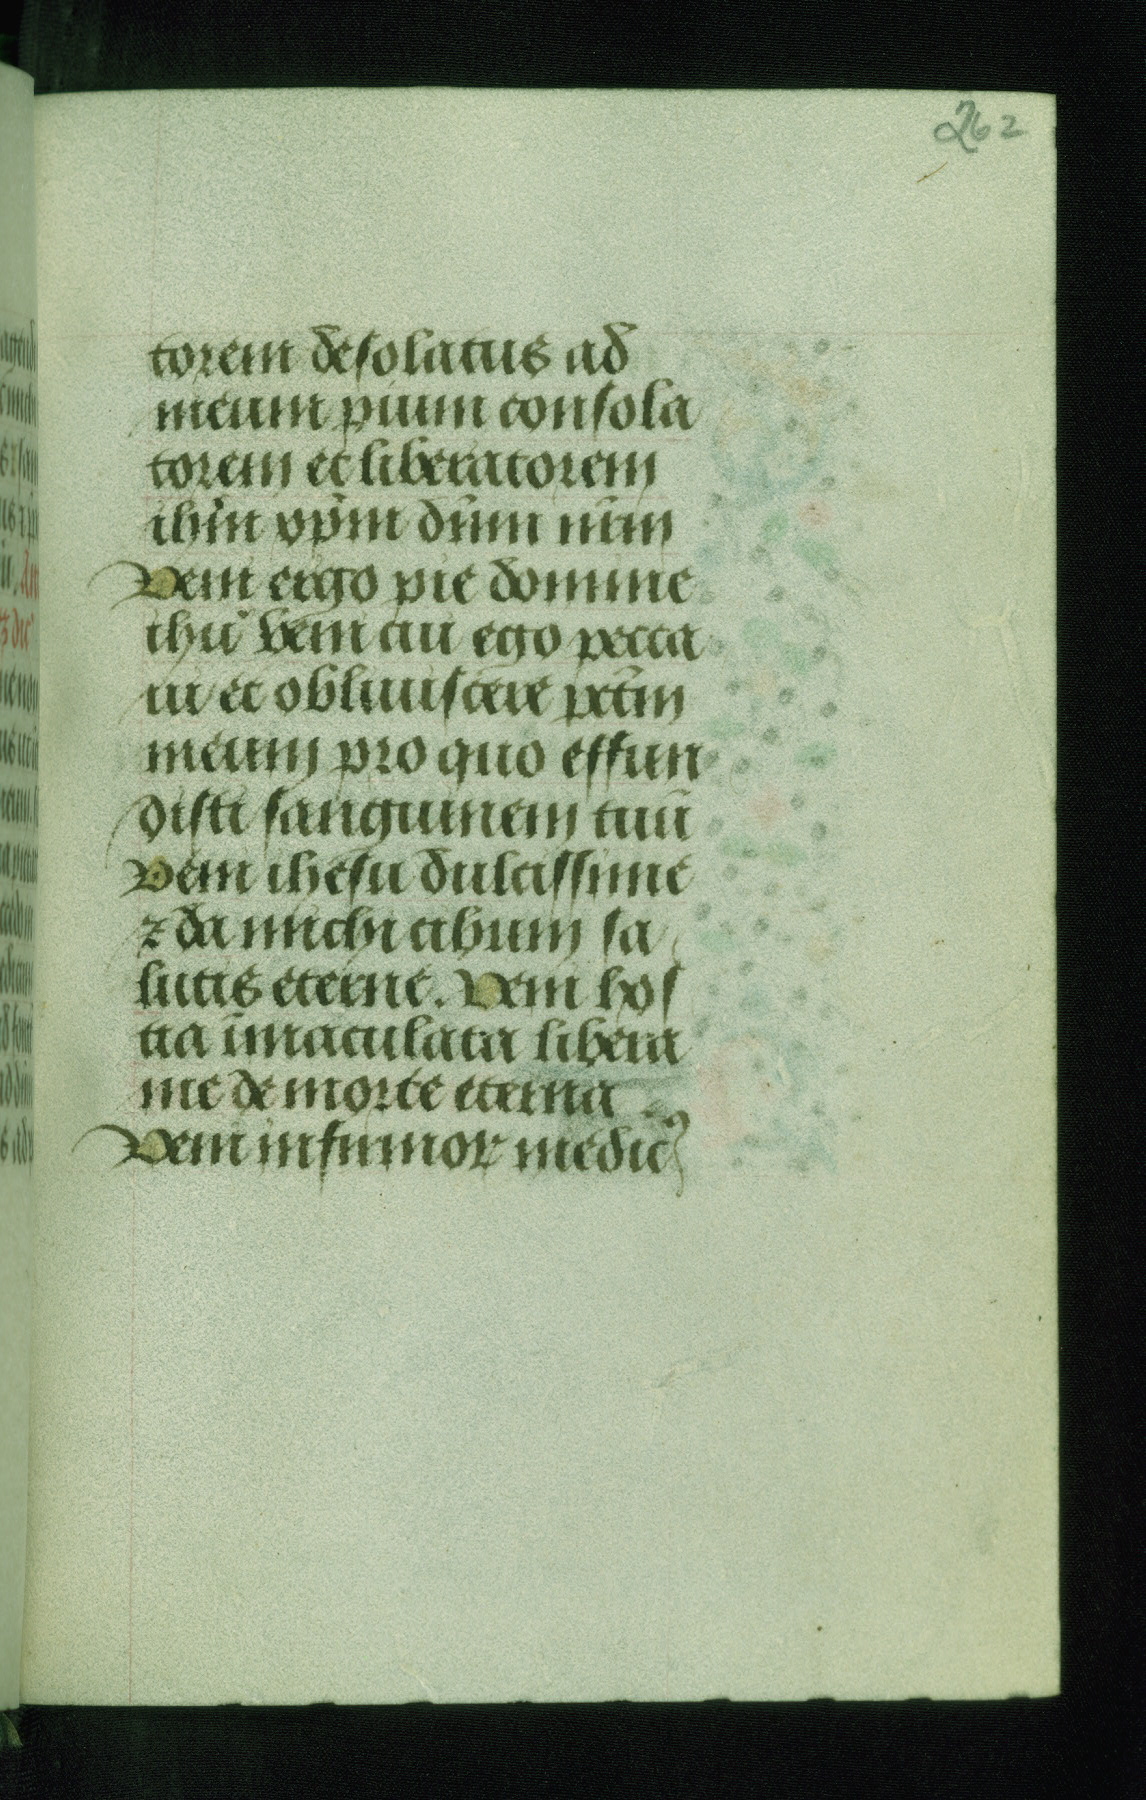 262
torem desolatus ad
meum pium consola
torem et liberatorem
ihūn xp̄m dn̄m nr̄m
Veni ergo pie domine
ihū veni cui ego pecca
ui et obliuiscere pctm̄
meum pro quo effun
disti sanguinem tuū
Veni ihesu dulcissime
⁊ da michi cibum sa
lutis eterne. Veni hos
tia īmaculata libera
me de morte eterna
Veni infirmoꝝ medicꝰ